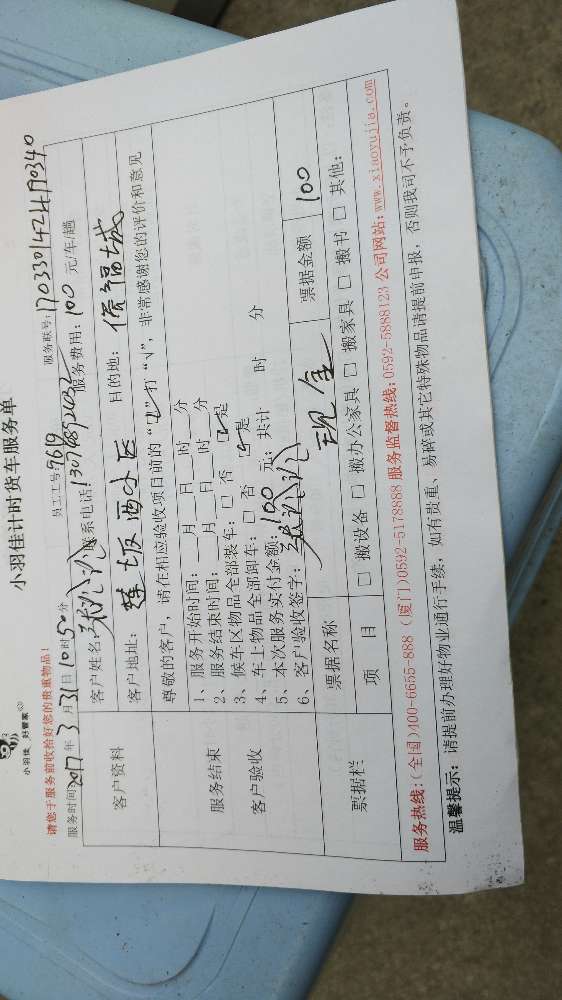 小羽佳 好管家
小羽佳计时货车服务单
请您于服务前收拾好您的贵重物品！
服务时间2017年3月31日10时50分 员工工号：9619 服务联号：17033014244170340
客户资料
客户姓名： 联系电话： 服务费用：100 元/车/趟
客户地址：莲坂西小区 目的地：
尊敬的客户，请在相应验收项目前的“□”打“√”，非常感谢您的评价和意见
服务结束
客户验收
1、服务开始时间：___月___日___时___分
2、服务结束时间：___月___日___时___分
3、候车区物品全部装车：□ 否 ☑是
4、车上物品全部卸车：□ 否 ☑是
5、本次服务实付金额：100 元；共计 时 分
6、客户验收签字：
票据栏
票据名称 现金 票据金额 100
项 目 □ 搬设备 □ 搬办公家具 □ 搬家具 □ 搬书 □ 其他：
服务热线：(全国)400-6655-888 (厦门)0592-5178888 服务监督热线：0592-5888123 公司网站：www.xiaoyujia.com
温馨提示： 请提前办理好物业通行手续，如有贵重、易碎或其它特殊物品请提前申报，否则我司不予负责。